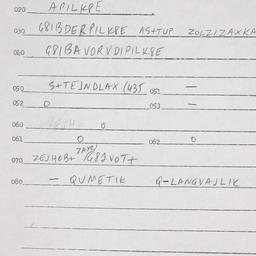 020 APILKPE
030 G8IBDERPILK8E AS+TUP ZOLZIZAXKA
040 G8IBAVORVDIPILK8E
050 S+TEJNDLAX (43J 051 —
052 O 053 —
060 O
061 O 062 O
070 ZEJHOB+ G82VOT+
080 — QUMETIK G-LANGVAJLIK